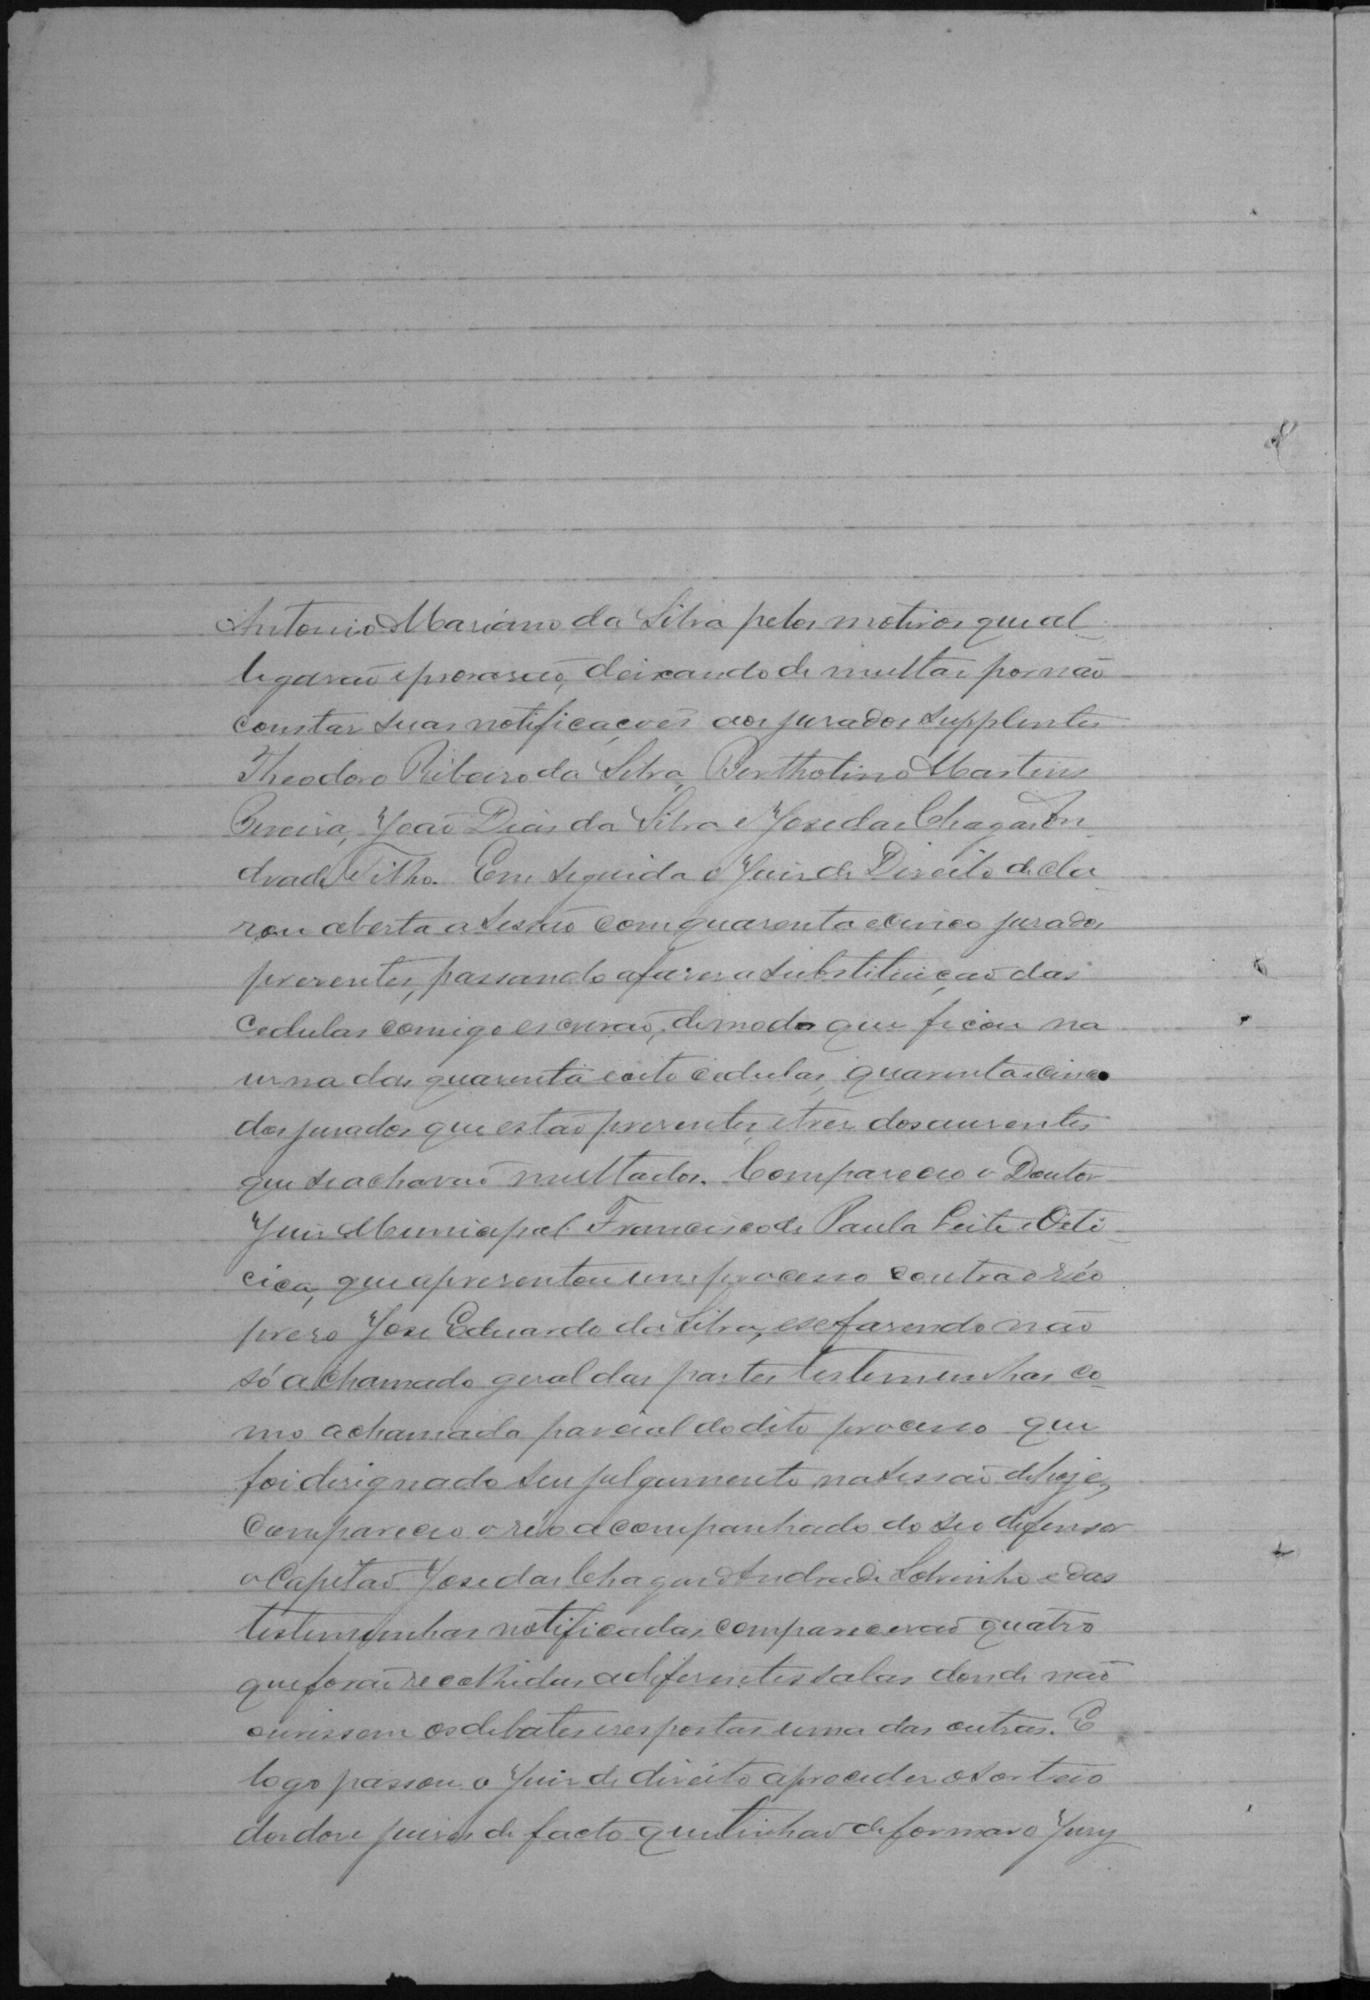 Antonio Mariano da Silva pelos motivos que al-
legarão e provarão, deixando de multar por não
constar suas notificações aos jurados supplentes
Theodoro Ribeiro da Silva, Bertholino Martins
Pereira, João Dias da Silva e José das Chagas An-
drade Filho. Em seguida o Juiz de Direito decla-
rou aberta a sessão com quarenta e cinco jurados
presentes, passando a fazer a substituição das
cedulas comigo escrivão, de modo que ficou na
urna das quarenta e oito cedulas, quarenta e cinco
dos jurados que estão presentes, e tres dos ausentes
que se achavão multados. Compareceo o Doutor
Juiz Municipal Francisco de Paula Leite e Oiti-
cica, que apresentou um processo contra o réo
prezo José Eduardo da Silva, e se fazendo não
só a chamada geral das partes testemunhas co-
mo a chamada parcial do dito processo que
foi designado seu julgamento na sessão de hoje,
Compareceo o réo acompanhado do seo defensor
o Capitão José das Chagas Andrade Sobrinho e das
testemunhas notificadas comparecerão quatro
que forão recolhidas a differentes salas donde não
ouvissem os debates e respostas uma das outras. E
logo passou o Juiz de direito a proceder o sorteio
dos doze juizes de facto que tinhão de formar o Jury